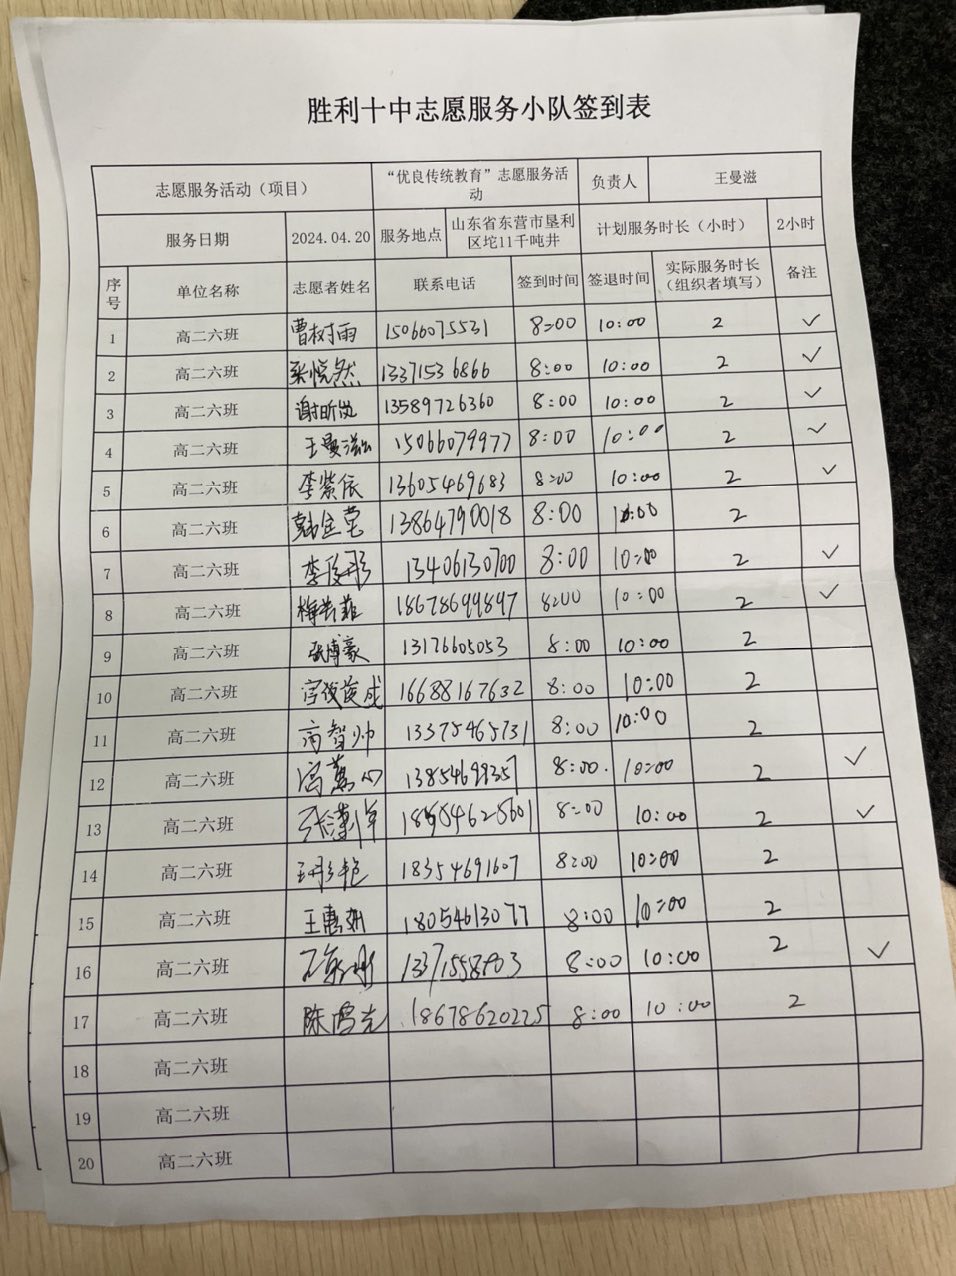 胜利十中志愿服务小队签到表
志愿服务活动（项目） “优良传统教育”志愿服务活动 负责人 王曼滋
服务日期 2024.04.20 服务地点 山东省东营市垦利区坨11千吨井 计划服务时长（小时） 2小时
序号 单位名称 志愿者姓名 联系电话 签到时间 签退时间 实际服务时长（组织者填写） 备注
1 高二六班 曹树雨 15066075531 8:00 10:00 2 ✓
2 高二六班 梁悦然 13371536866 8:00 10:00 2 ✓
3 高二六班 谢昕岚 13589726360 8:00 10:00 2 ✓
4 高二六班 王曼滋 15066079977 8:00 10:00 2 ✓
5 高二六班 李紫依 13605469683 8:00 10:00 2 ✓
6 高二六班 13864790018 8:00 10:00 2
7 高二六班 13406130700 8:00 10:00 2 ✓
8 高二六班 18678699897 8:00 10:00 2 ✓
9 高二六班 张博豪 13176605053 8:00 10:00 2
10 高二六班 16688167632 8:00 10:00 2
11 高二六班 高智帅 13375465731 8:00 10:00 2
12 高二六班 8:00 10:00 2 ✓
13 高二六班 8:00 10:00 2 ✓
14 高二六班 18354691607 8:00 10:00 2
15 高二六班 王惠妍 18054613077 8:00 10:00 2
16 高二六班 8:00 10:00 2 ✓
17 高二六班 18678620225 8:00 10:00 2
18 高二六班
19 高二六班
20 高二六班